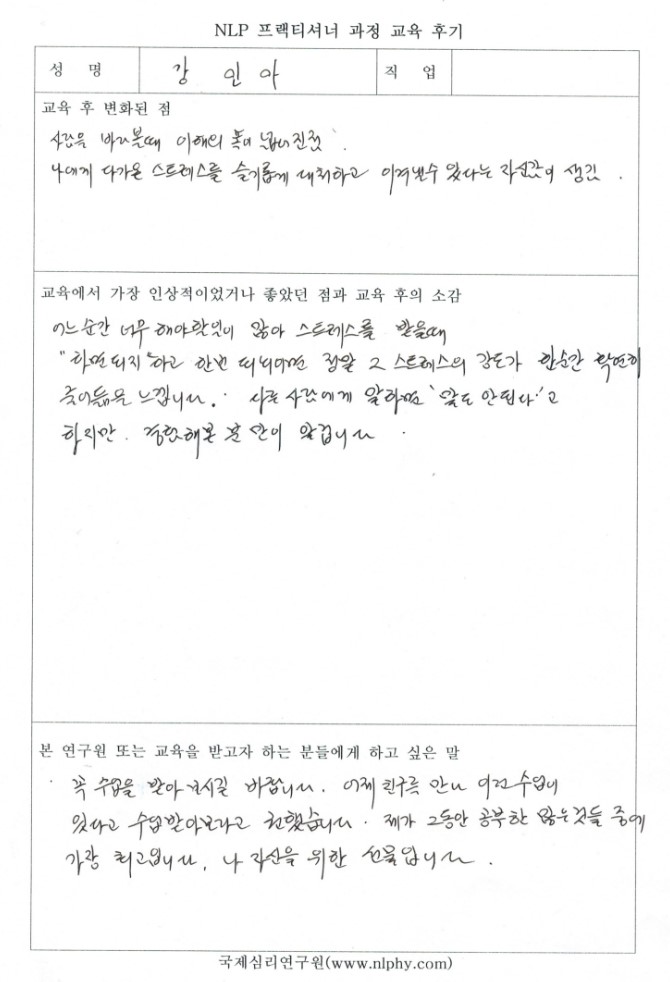 NLP 프랙티셔너 과정 교육 후기
성 명 강 인 아 직 업
교육 후 변화된 점
사람을 바라볼때 이해의 폭이 넓어진것.
나에게 다가온 스트레스를 슬기롭게 대처하고 이겨낼수 있다는 자신감이 생김.
교육에서 가장 인상적이었거나 좋았던 점과 교육 후의 소감
어느순간 너무 해야할일이 많아 스트레스를 받을때
"하면되지" 하고 한번 되뇌이면 정말 그 스트레스의 강도가 한순간 확연히
줄어듦을 느낍니다. 다른 사람에게 말하면 '말도 안된다'고
하지만. 경험해본 분 만이 알겁니다.
본 연구원 또는 교육을 받고자 하는 분들에게 하고 싶은 말
꼭 수업을 받아 보시길 바랍니다. 어제 친구를 만나 이런 수업이
있다고 수업받아보라고 권했습니다. 제가 그동안 공부한 많은것들 중에
가장 최고입니다. 나 자신을 위한 선물입니다.
국제심리연구원(www.nlphy.com)